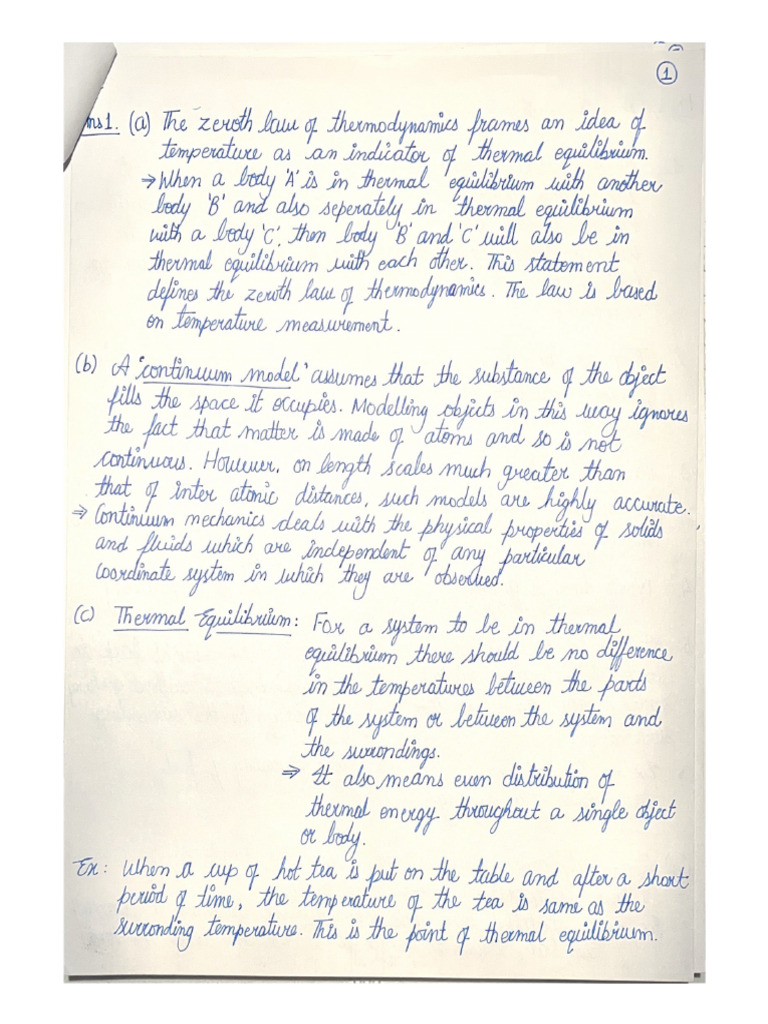 1
Ans1. (a) The zeroth law of thermodynamics frames an idea of
temperature as an indicator of thermal equilibrium.
→ When a body 'A' is in thermal equilibrium with another
body 'B' and also seperately in thermal equilibrium
with a body 'C', then body 'B' and 'C' will also be in
thermal equilibrium with each other. This statement
defines the zeroth law of thermodynamics. The law is based
on temperature measurement.
(b) A 'continuum model' assumes that the substance of the object
fills the space it occupies. Modelling objects in this way ignores
the fact that matter is made of atoms and so is not
continuous. However, on length scales much greater than
that of inter atomic distances, such models are highly accurate.
⇒ Continium mechanics deals with the physical properties of solids
and fluids which are independent of any particular
coordinate system in which they are observed.
(c) Thermal Equilibrium: For a system to be in thermal
equilibrium there should be no difference
in the temperatures between the parts
of the system or between the system and
the surrondings.
⇒ It also means even distribution of
thermal energy throughout a single object
or body.
Ex: When a cup of hot tea is put on the table and after a short
period of time, the temperature of the tea is same as the
surronding temperature. This is the point of thermal equilibrium.